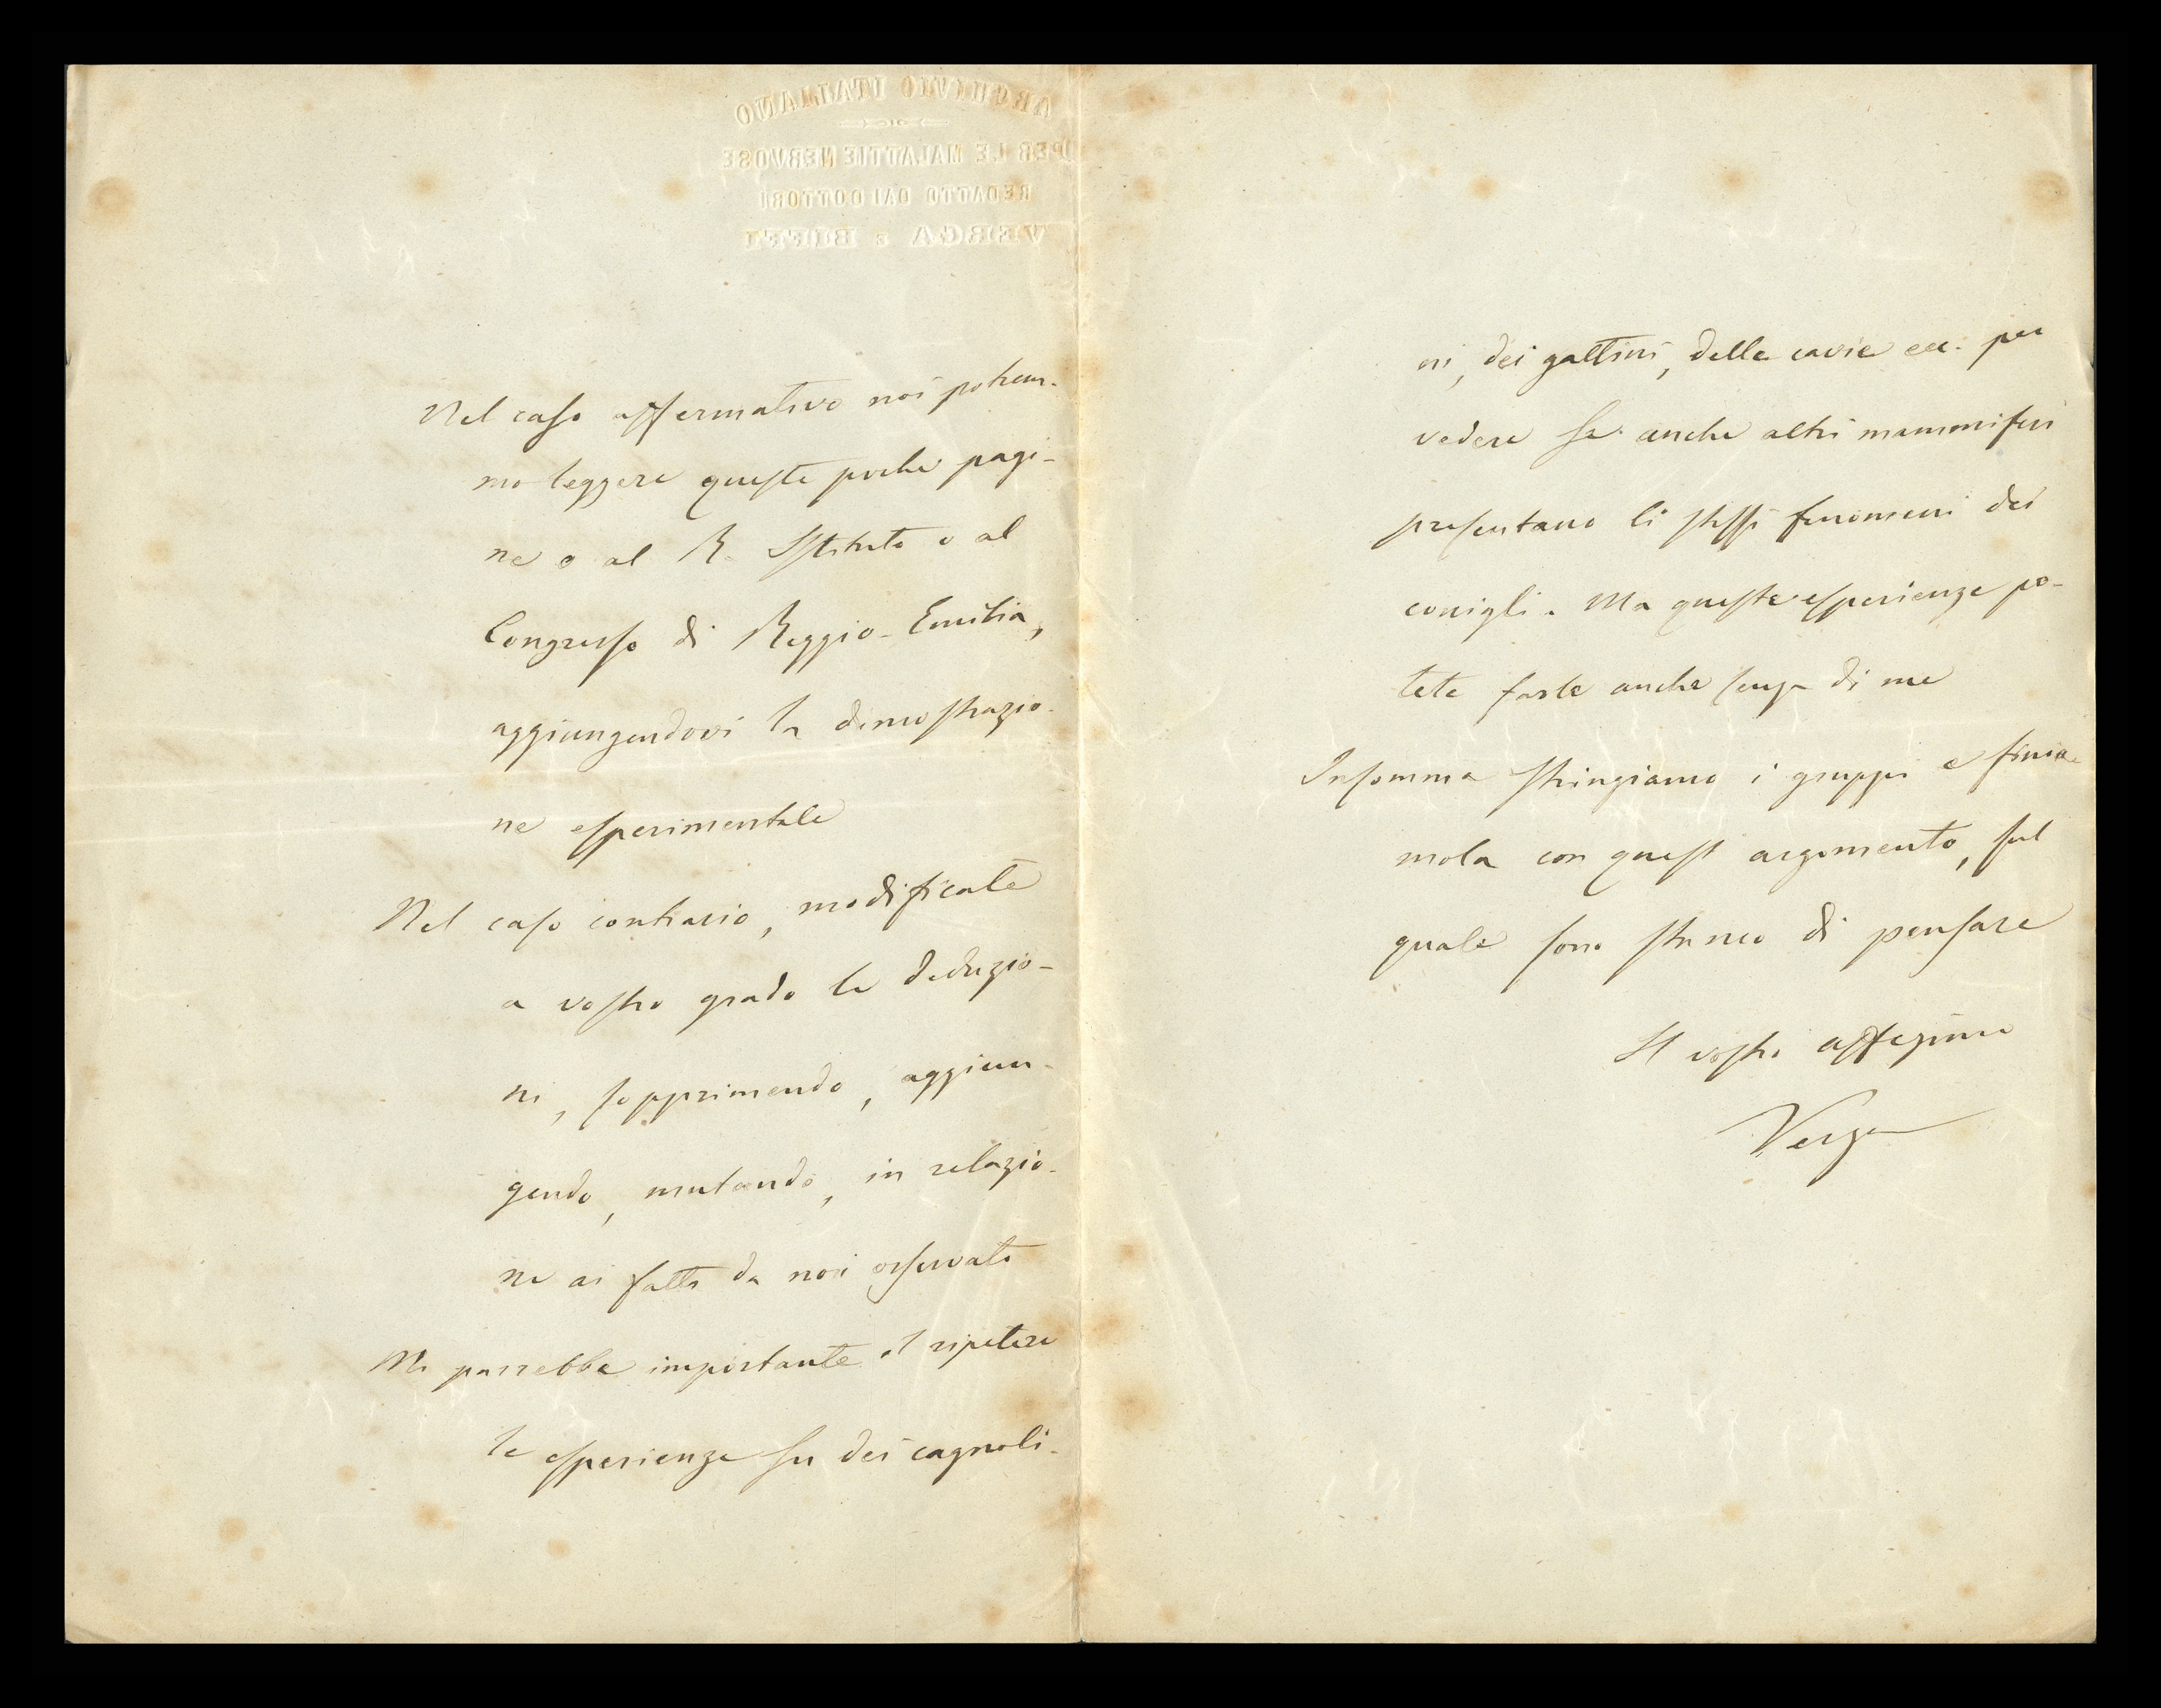 ARCHIVIO ITALIANO
PER LE MALATTIE NERVOSE
REDATTO DAI DOTTORI
VERGA E BIFFI
Nel caso affermativo noi potrem-
mo leggere queste poche pagi-
ne o al R. Istituto o al
Congresso di Reggio-Emilia,
aggiungendovi la dimostrazio-
ne esperimentale
Nel caso contrario, modificate
a vostro grado le deduzio-
ni, sopprimendo, aggiun-
gendo, mutando, in relazio-
ne ai fatti da noi osservati
Mi parrebbe importante il ripetere
le esperienze su dei cagnoli-
ni, dei gattini, delle cavie ecc. per
vedere se anche altri mammiferi
presentano li stessi fenomeni dei
conigli. Ma queste esperienze po-
tete farle anche senza di me
Insomma stringiamo i gruppi e finia-
mola con quest argomento, sul
quale sono stanco di pensare
Il vostro affezimo
Verga